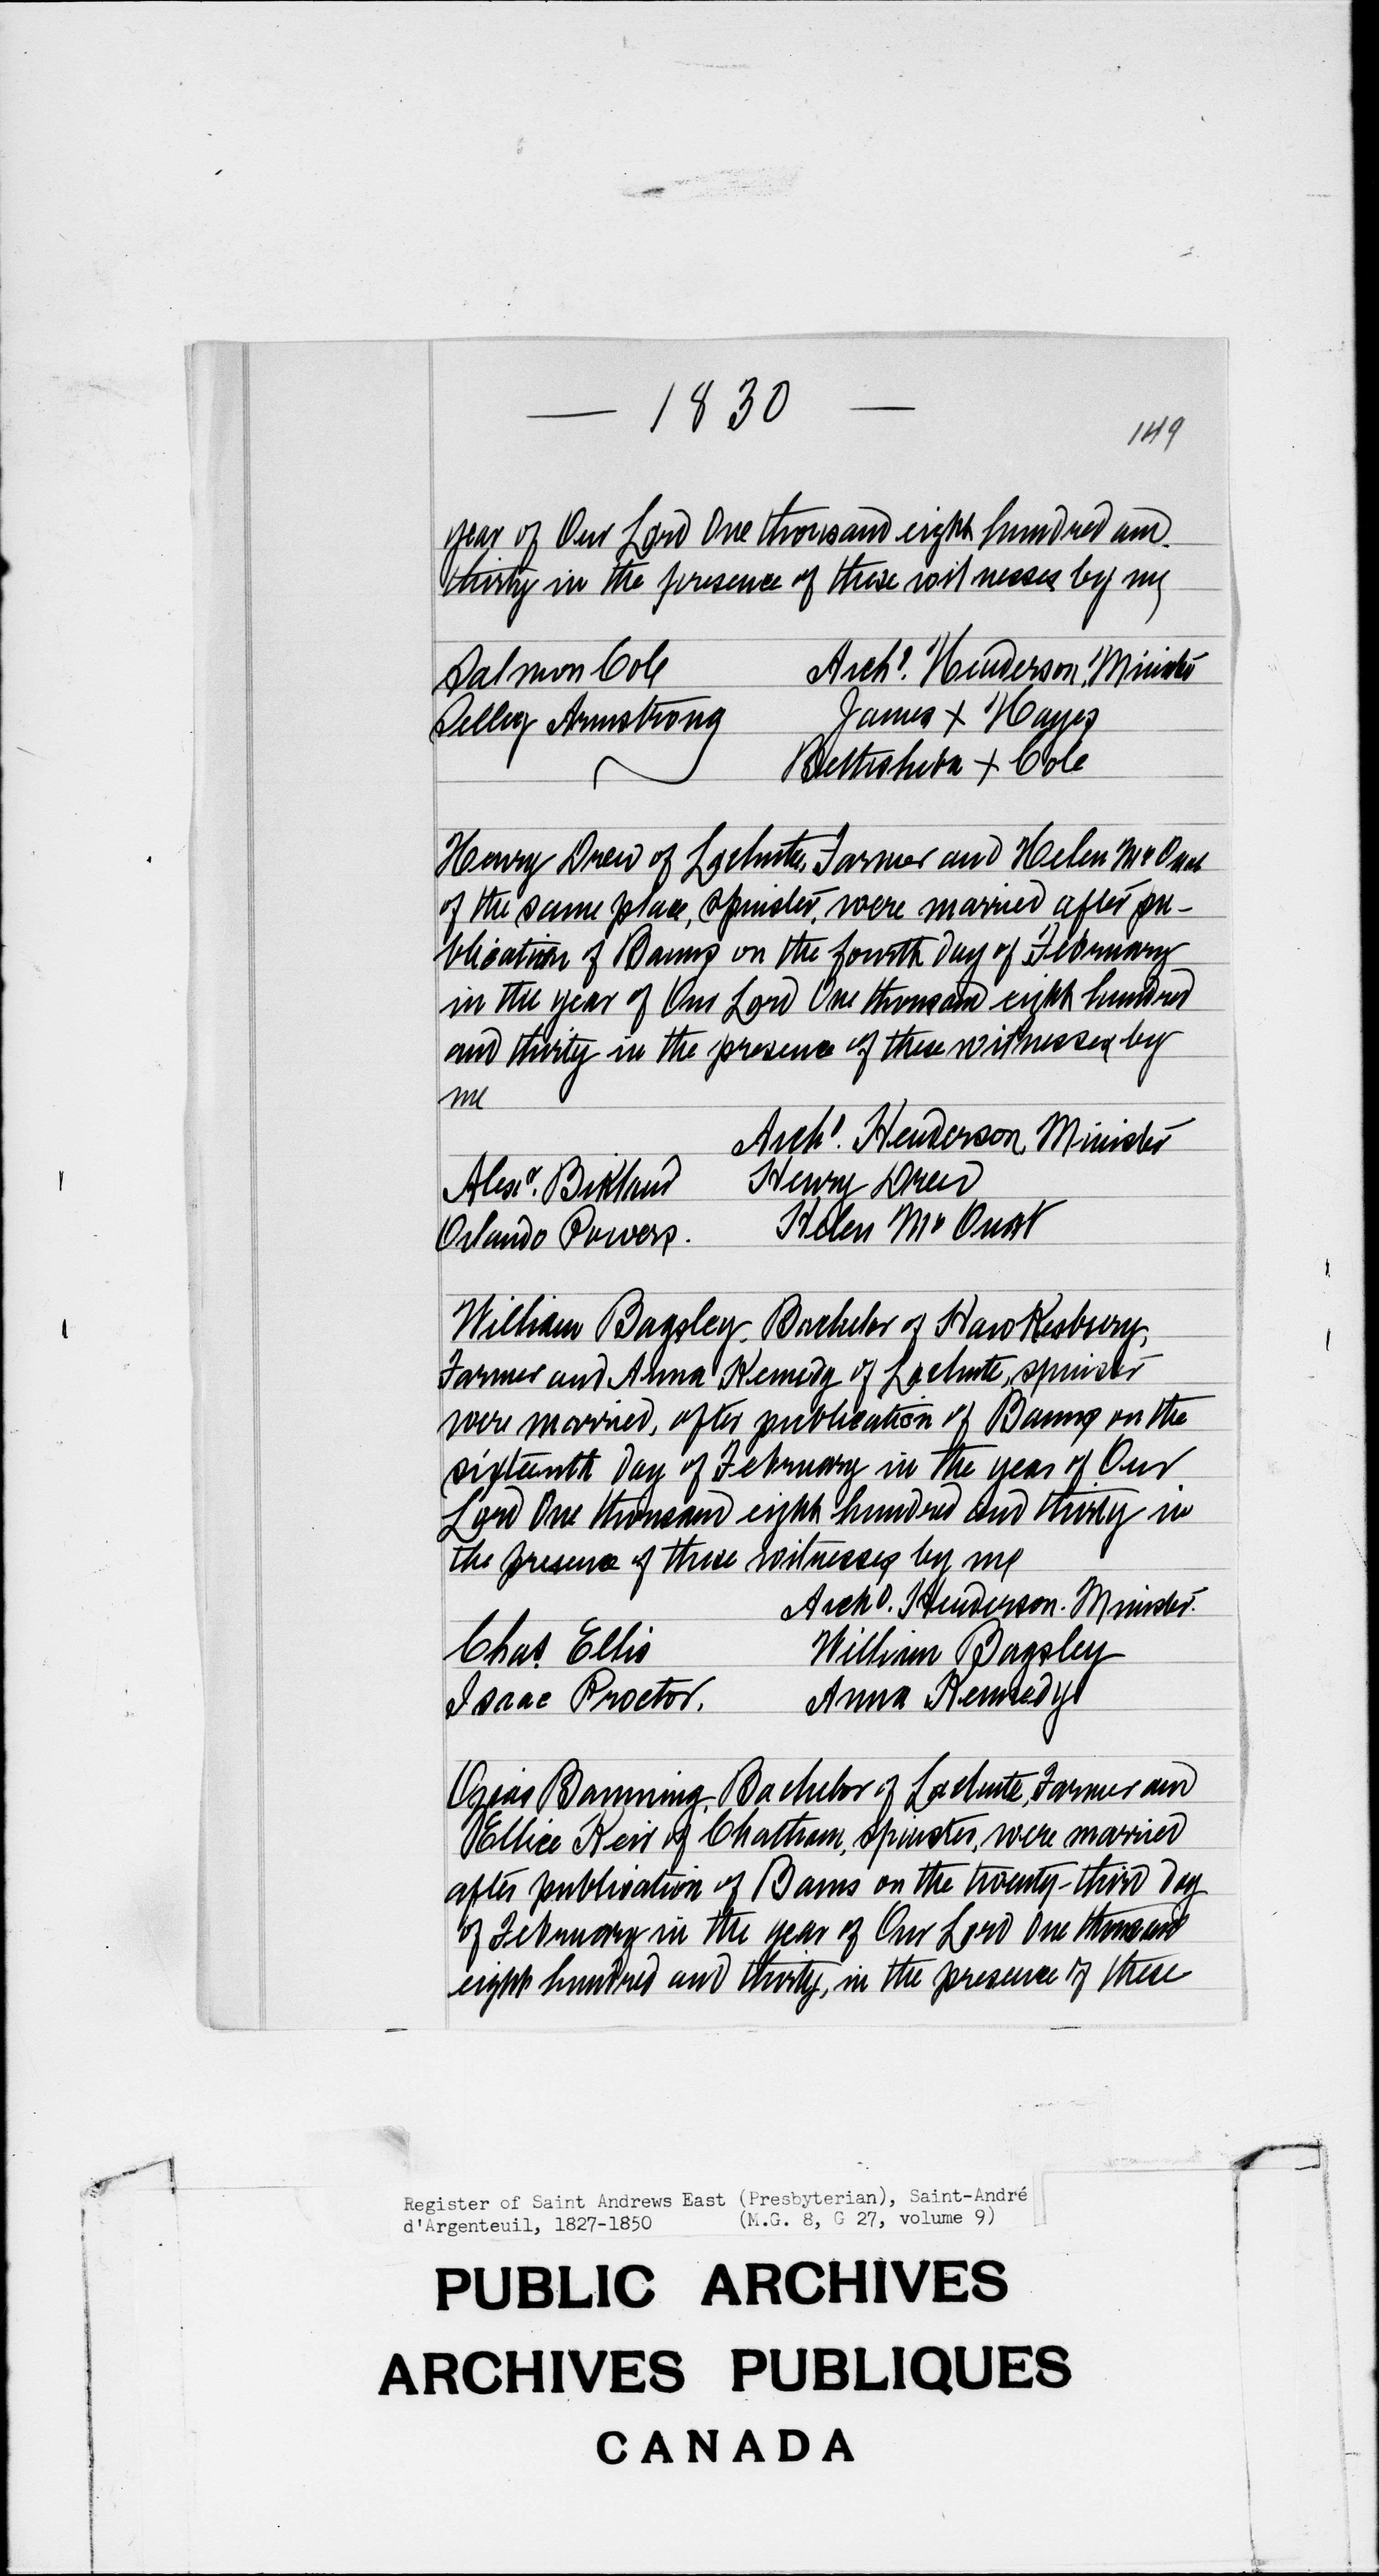 — 1830 —
149
year of Our Lord One thousand eight hundred and
thirty in the presence of these witnesses by me
Salmon Cole Archd. Henderson, Minister
Armstrong James + Hayes
Bethsheba + Cole
Henry Drew of Lachute, Farmer and Helen Mc Ouat
of the same place, spinster, were married after pu-
blication of Banns on the fourth day of February
in the year of Our Lord One thousand eight hundred
and thirty in the presence of these witnesses by
me
Archd. Henderson, Minister
Alexr. Henry Drew
Orlando Powers. Helen Mc Ouat
William Bagsley, Bachelor of Hawkesbury,
Farmer and Anna Kennedy of Lachute, spinster
were married, after publication of Banns on the
sixteenth day of February in the year of Our
Lord One thousand eight hundred and thirty in
the presence of these witnesses by me
Archd. Henderson. Minister.
Chas. Ellis William Bagsley
Isaac Proctor. Anna Kennedy
Ozias Banning, Bachelor of Lachute, Farmer and
Ellice Keir of Chatham, spinster, were married
after publication of Banns on the twenty-third day
of February in the year of Our Lord One thousand
eight hundred and thirty, in the presence of these
Register of Saint Andrews East (Presbyterian), Saint-André
d'Argenteuil, 1827-1850 (M.G. 8, G 27, volume 9)
PUBLIC ARCHIVES
ARCHIVES PUBLIQUES
CANADA